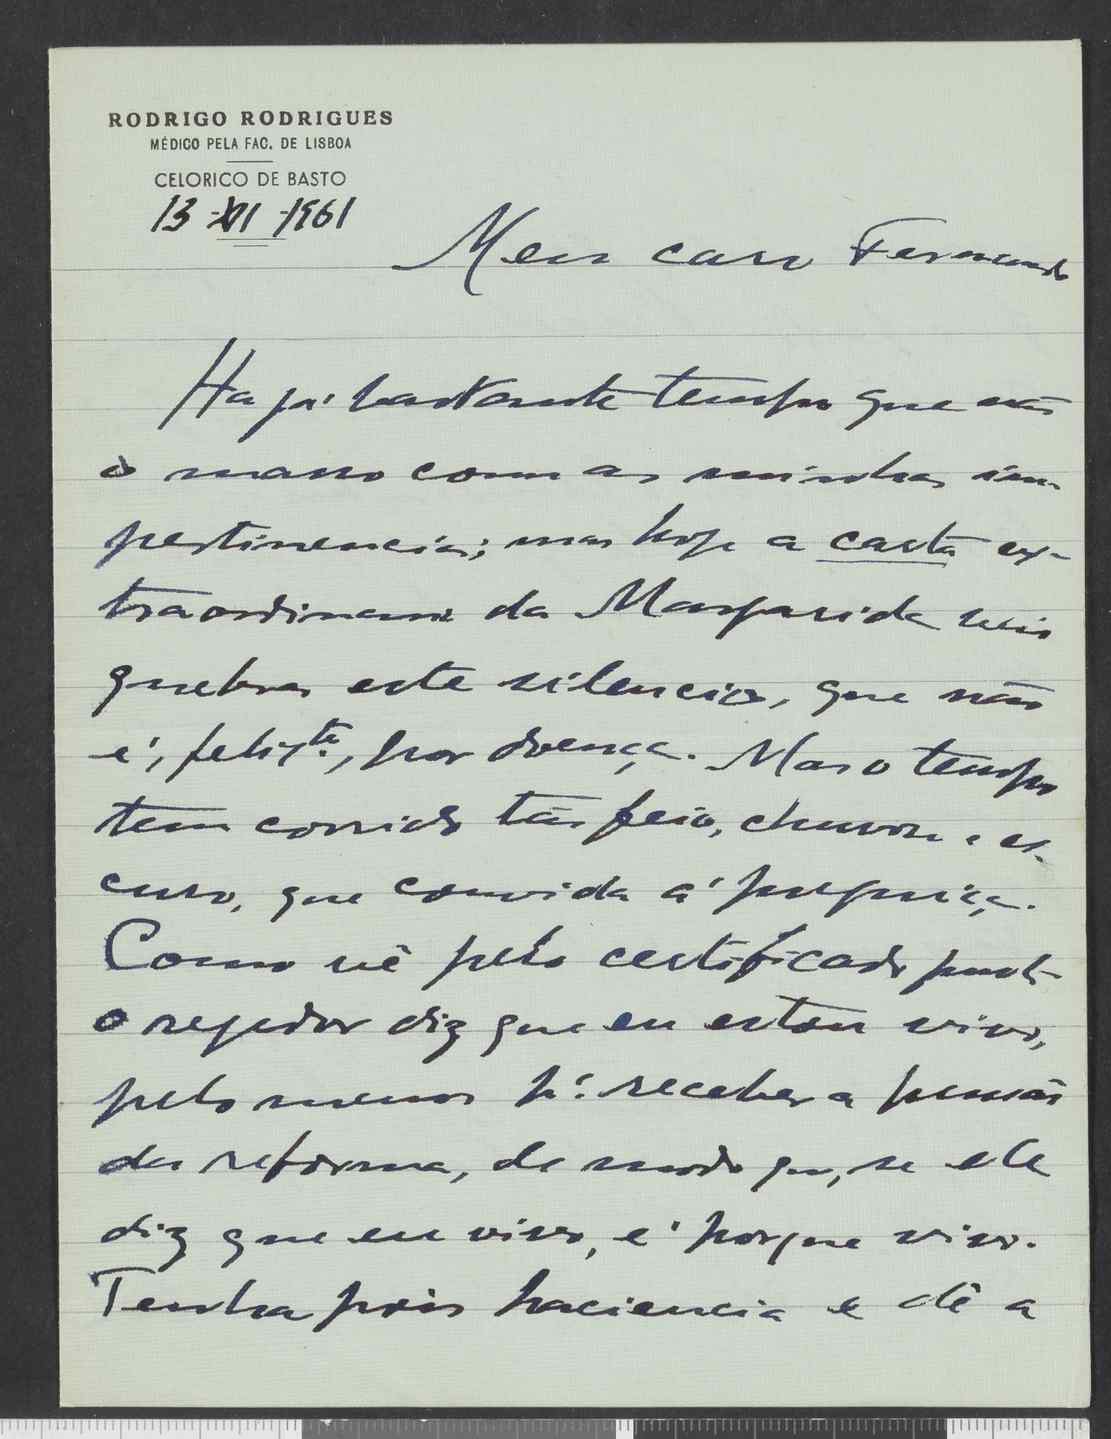 RODRIGO RODRIGUES
MÉDICO PELA FAC. DE LISBOA
CELORICO DE BASTO
13-XII-1961
Meu caro Fernando
Ha já bastante tempo que não
o masso com as minhas im-
pertinencias; mas hoje a carta ex-
traordinaria da Margarida veio
quebrar este silencio, que não
é, felizte, por doença. Mas o tempo
tem corrido tão feio, chuvoso e es-
curo, que convida á preguiça.
Como vê pelo certificado junto
o regedor diz que eu estou vivo,
pelo menos pª receber a pensão
da reforma, de modo que, se ele
diz que eu vivo, é porque vivo.
Tenha pois paciencia e dê a